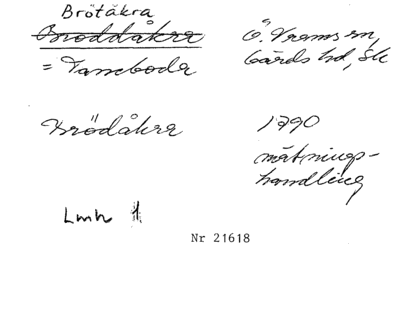 Brötåkra
Broddåkra Ö. Vrams sn,
= Tomeboda Gärds hd, Sk
Brödåkra 1790
mätnings-
handling
Lmh 1
Nr 21618